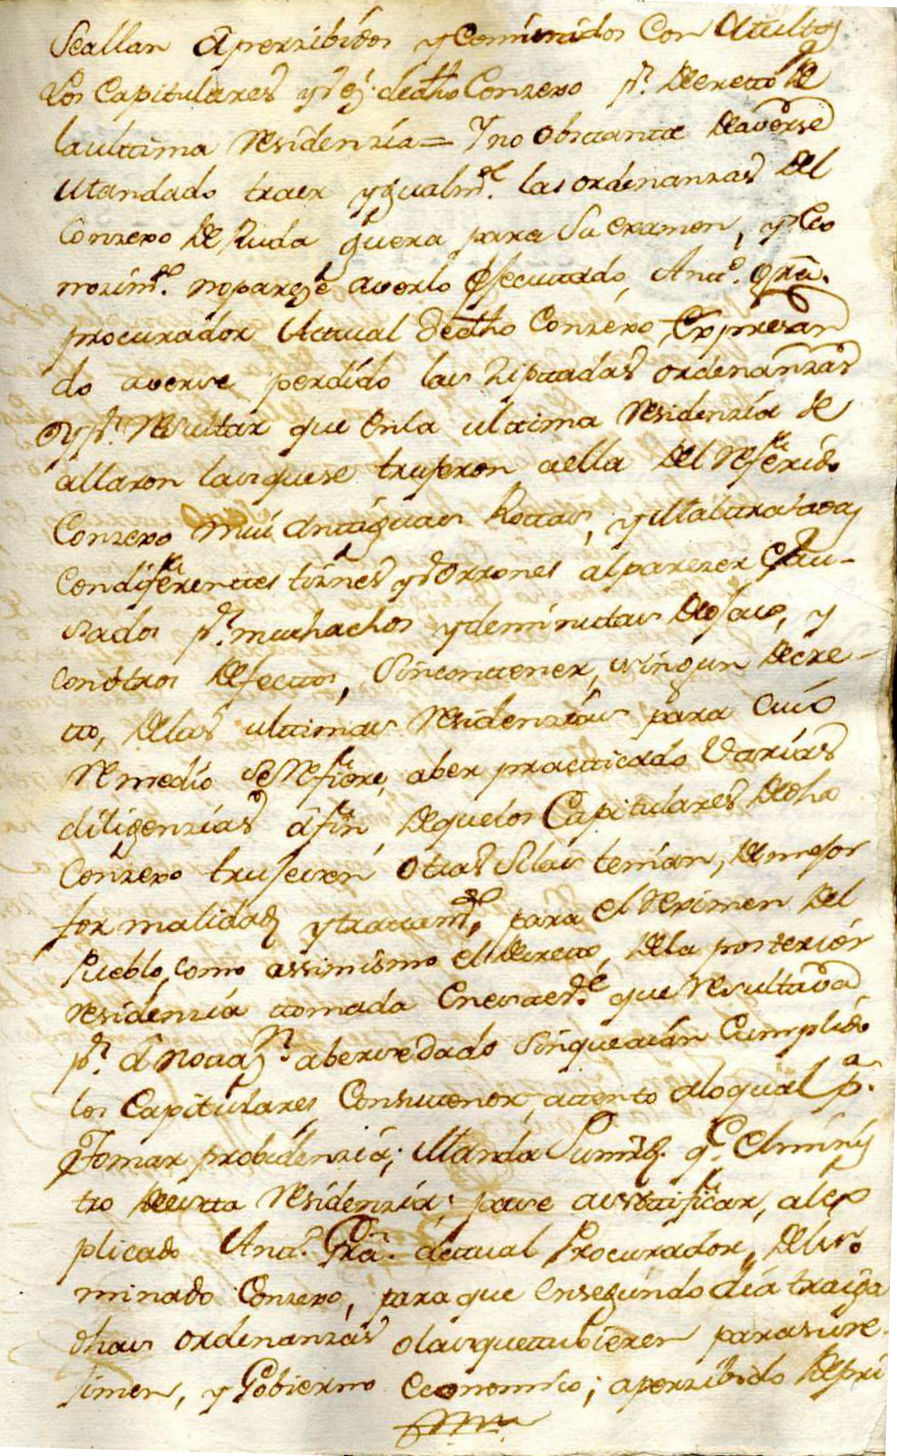 Seallan Aperzibidos y Cominados Con Multas
Los Capitulares y Vz.s dedho Conzexo pr. Decretto de
laulttima residenzia = Y no obsttantte de averse
Mandado traer ygualmte. las ordenanzas del
Conzexo De Ruda guera para Su examen, y reco
nozimto. no pareze averlo ejecuttado, Anto. Grã.
procurador Acttual dedho Conzexo Expresan
do averse perdido las zittadas ordenanzas
y pr. resultar que Enla ulttima residenzia se
allaron lasquese trujeron aella del referido
Conzexo mui Antiguas Rottas, y Maltratadas
Condiferenttes tirnes y Vorrones alparezer Cau-
sados pr. muchachos ydeminuttas deojas, y
conotros defecttos, Sinconttener, ningun decre-
tto, delas ulttimas residenzias para Cuio
remedio Se refiere, aber practticado Varias
diligenzias afin, deque los Capitulares dedho
Conzexo trujeren Otras Silas tenian, de mejor
formalidad y trattamto. para el reximen del
Pueblo, como assimismo el decretto, dela postterior
residenzia ttomada Enestte que resulttava
pr. aberse dado Sinque aian Cumplido
los Capitulares Consuttenor, attento aloqual pa.
Ttomar probidenzia; Manda Sumrd. qe. Elminis
tro deestta residenzia; pase anottificar, alex
plicado Anto. Grã. Acttual Procurador, delno
minado Conzexo, para que Ensegundo dia traiga
dhas ordenanzas olasquettubieren parasure-
jimen, y Gobierno Economico; aperzibido depri